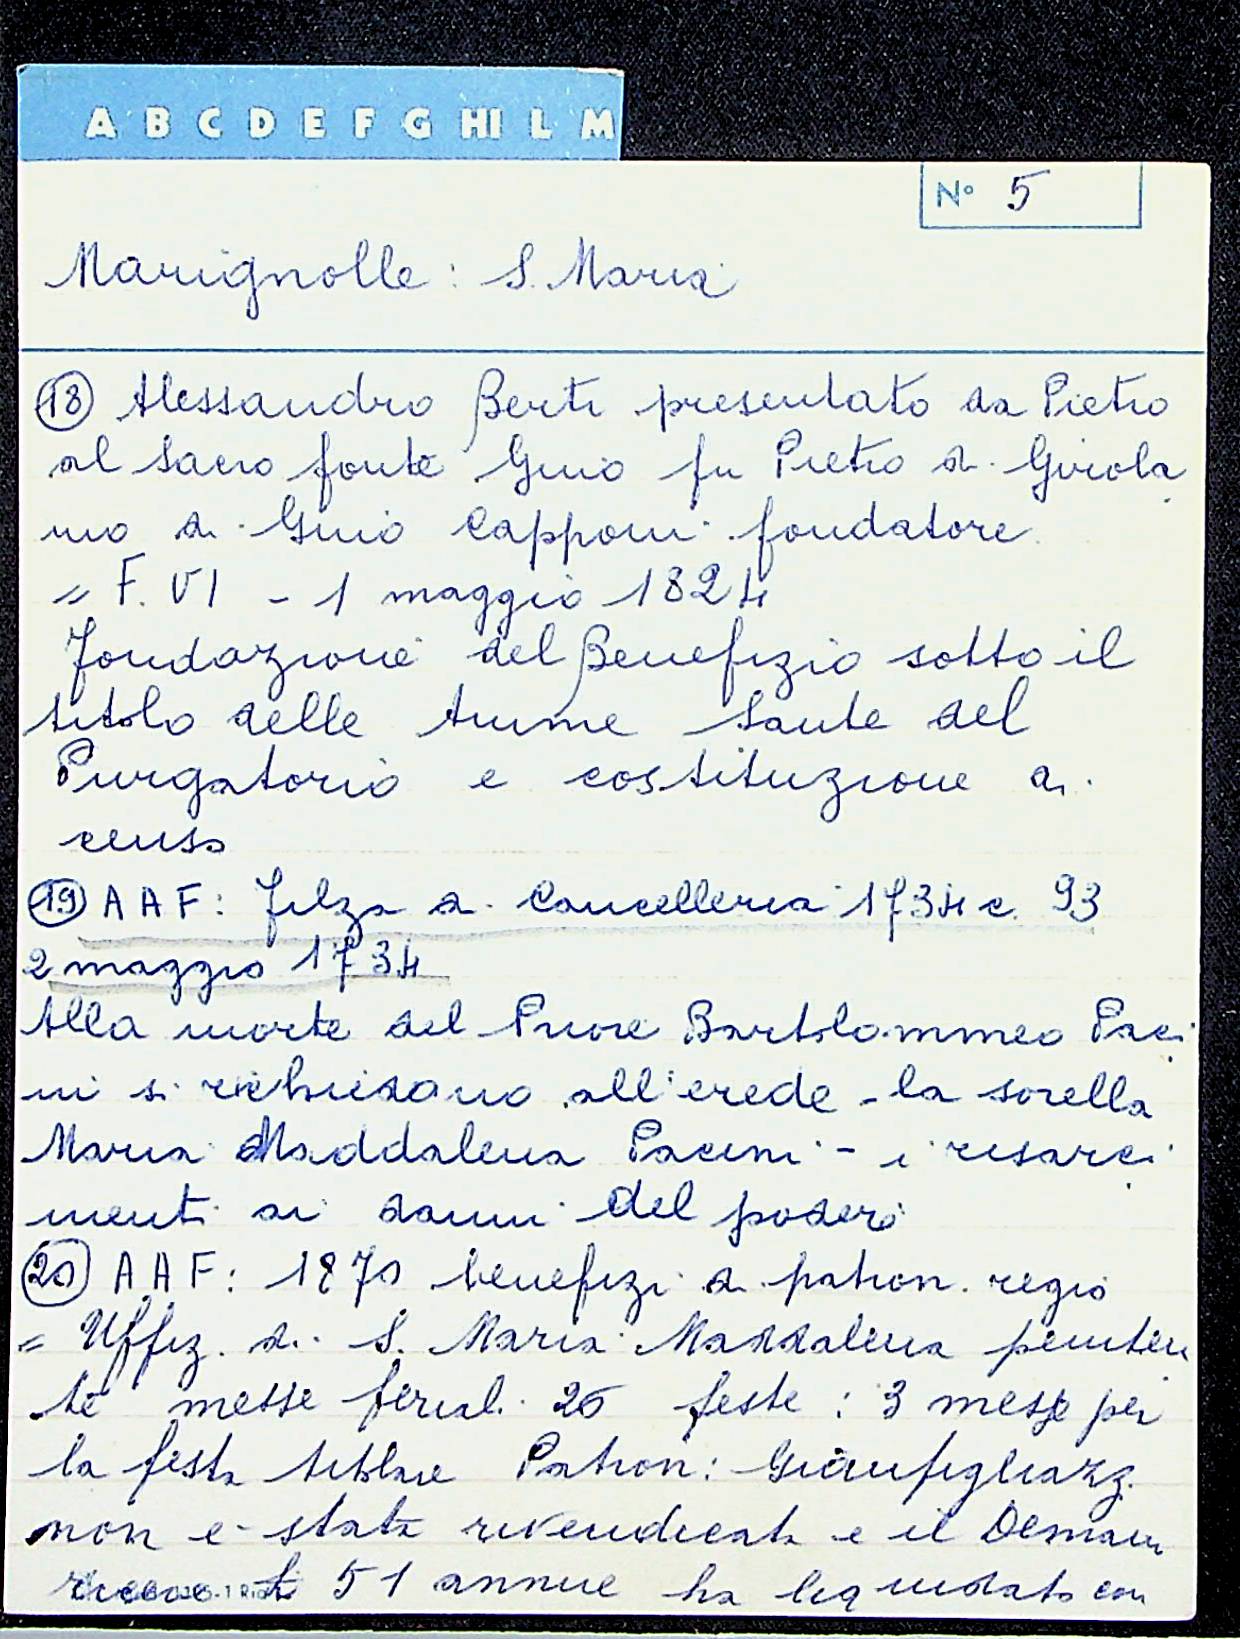 A B C D E F G HI L M
N° 5
Marignolle: S. Maria
(18) Alessandro Berti presentato da Pietro
al Sacro fonte Gino fu Pietro di Girola
mo di Gino Capponi fondatore
= F. VI - 1 maggio 1824
Fondazione del Benefizio sotto il
titolo delle Anime Sante del
Purgatorio e costituzione di
censo
(19) AAF: Filza di Cancelleria 1734 c. 93
2 maggio 1734
Alla morte del Priore Bartolommeo Paci
ni si richiedano all'erede - la sorella
Maria Maddalena Pacini - i risarci
menti ai danni del poderi
(20) AAF: 1870 benefizi di patron. regio
= Uffiz. di S. Maria Maddalena peniten
te messe feriali 20 feste: 3 messe per
la festa titolare Patron: Gianfigliazz.
non è stata rivendicata e il Deman
51 annue ha liquidato con